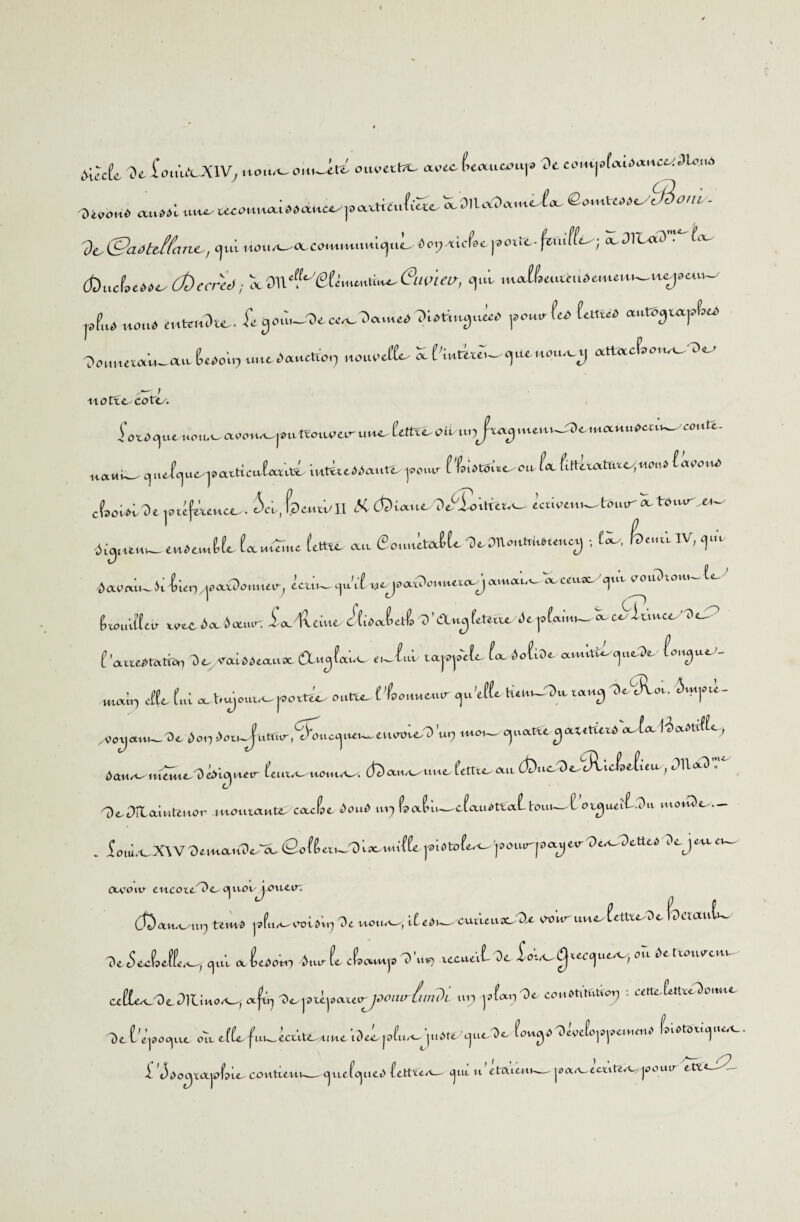 siècle de Louis XIV, nous ont été ouverts avec beaucoup de complaisance. Nous
devons aussi une reconnaissance particulière à Madame la Comtesse Boni-
de Castellane, qui nous a communiqué son riche porte-feuille; à Mad.me la
Duchesse Decrès; à M.elle Clémentine Cuvier, qui malheureusement ne peut
plus nous entendre. Le goût de ces dames distinguées pour les lettres autographes
donnerait au besoin une sanction nouvelle à l'intérêt que nous y attachons de
notre côté.
Lorsque nous avons pu trouver une lettre où un fragment de manuscrit conte-
nant quelque particularité intéressante pour l'histoire ou la littérature, nous l'avons
choisi de préférence. Ici, Henri II & Diane de Poitiers écrivent tour à tour et
signent ensemble la même lettre au Connétable de Montmorency; là, Henri IV, qui
savait si bien pardonner, écrit qu'il ne pardonnera jamais à ceux qui voudront le
brouiller avec sa sœur. La Reine Elisabeth d'Angleterre se plaint à ce Prince de
l'arrestation de vaisseaux Anglais et lui rappelle la solide amitié que de longue-
main elle lui a toujours portée outre l'honneur qu'elle tient du rang de Roi. Impré-
voyant de son Surtur, Foucquet envoie d'un mot quatre gazetiers à la Bastille,
sans même désigner leurs noms. Dans une lettre au Duc de Richelieu, Mad.me
de Maintenon montante cache sous un habit claustral tout l'orgueil du monde.—
Louis XV demande à Colbert dix mille pistoles pour payer des dettes de jeu et
avoir encore de quoi jouer.
Dans un tems plus voisin de nous, il est curieux de voir une lettre de Herault
de Sechelles, qui a besoin sur le champ d'un recueil de Lois Grecques, où se trouvent
celles de Minos, afin de préparer pour lundi un plan de constitution : cette lettre donne
de l'époque où elle fut écrite une idée plus juste que de longs développemens historiques.
L'Isographie contient quelques lettres qui n'étaient pas écrites pour être